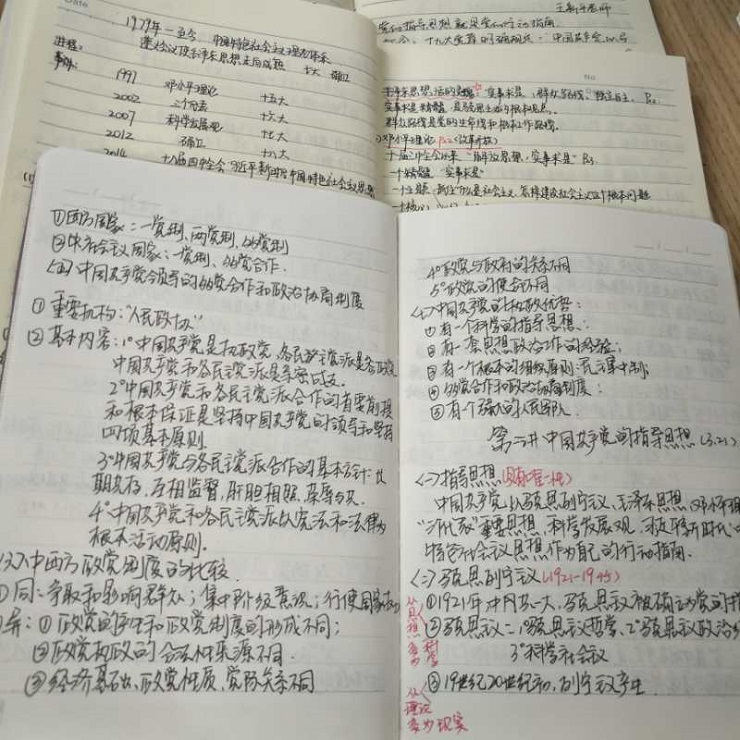 1979年—至今 中国特色社会主义理论体系
进程:
1997 邓小平理论 十五大
2002 三个代表 十六大
2007 科学发展观 十七大
2012 十八大
王新平老师
党的指导思想就是党的行动指南
No
毛泽东思想活的灵魂:实事求是,群众路线,独立自主。
群众路线是党的生命线和根本工作路线。
十一届三中全会以来 "解放思想,实事求是"
一个精髓:"实事求是"
①西方国家:一党制、两党制、多党制
②社会主义国家:一党制、多党合作.
<五>中国共产党领导的多党合作和政治协商制度
①重要机构:"人民政协"
②基本内容:1°中国共产党是执政党,各民主党派是参政党
中国共产党和各民主党派是亲密战友.
2°中国共产党和各民主党派合作的首要前提
和根本保证是坚持中国共产党的领导和坚持
四项基本原则
3°中国共产党与各民主党派合作的基本方针:长
期共存,互相监督,肝胆相照,荣辱与共
4°中国共产党和各民主党派以宪法和法律为
根本活动原则.
<六>中西方政党制度的比较
①同:争取和影响群众;集中阶级意志;行使国家权力
②异:①政党的产生和政党制度的形成不同;
②政党执政的合法性来源不同.
③经济基础、政党性质、党际关系不同
4°政党与政府的关系不同
5°政党的使命不同
<七>中国共产党的执政优势:
①有一个科学的指导思想;
②有一套思想政治工作的经验;
③有一个根本的组织原则:民主集中制;
④多党合作和政治协商制度;
⑤有个强大的人民军队.
第二讲 中国共产党的指导思想(3.21)
<一>指导思想
中国共产党以马克思列宁主义、毛泽东思想、邓小平理
"三个代表"重要思想、科学发展观、习近平新时代中
特色社会主义思想作为自己的行动指南.
<二>马克思列宁主义(1921-1945)
①1921年中共一大,马克思主义被确立为党的指
②马克思主义=1°马克思主义哲学,2°马克思主义政治
3°科学社会主义
③19世纪20世纪初,列宁主义产生.
从空想变为科学
从理论变为现实